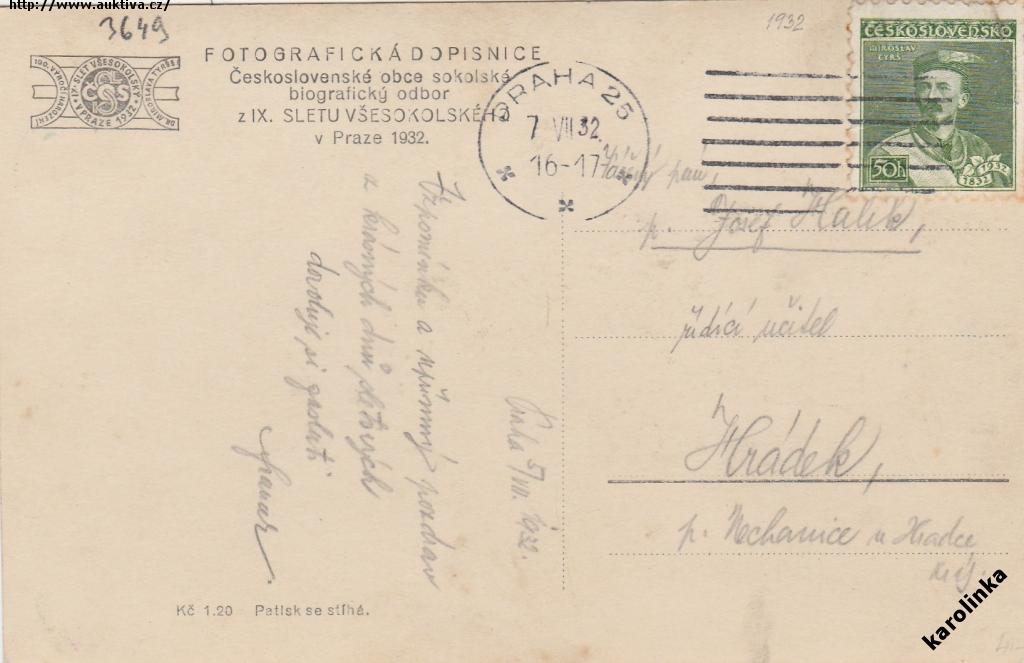 http://www.auktiva.cz/
3649
1932
FOTOGRAFICKÁ DOPISNICE
Československé obce sokolské
biografický odbor
z IX. SLETU VŠESOKOLSKÉHO
v Praze 1932.
100. VÝROČÍ NAROZENÍ
IX. SLET VŠESOKOLSKÝ
ČOS
V PRAZE 1932
DR. MIROSLAVA TYRŠE
PRAHA 25
7 VII 32
16-17
ČESKOSLOVENSKO
MIROSLAV
TYRŠ
50h
1832
1932
Vážený pan,
p. Josef Halík,
řídící učitel
Hrádek,
p. Nechanice u Hradce
Král.
Praha 5/VII. 1932.
Vzpomínku a upřímný pozdrav
z krásných dnů sletových
dovoluji si zaslati
Kč 1.20 Patisk se stíhá.
karolinka